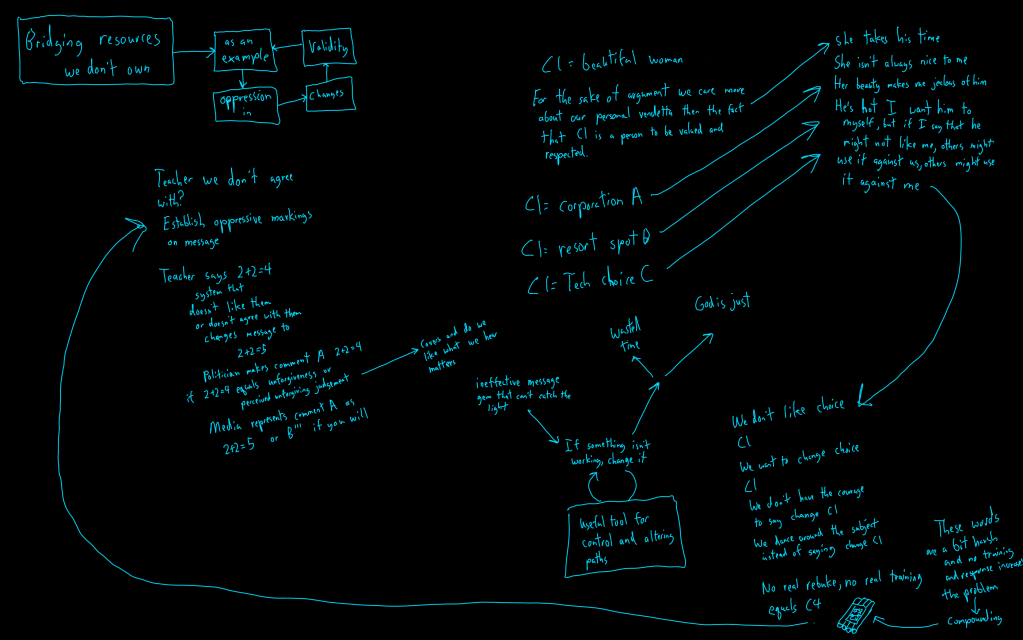 Bridging resources
we don't own
as an
example
Validity
oppression
in
changes
C1 = beautiful woman
For the sake of argument we care more
about our personal vendetta then the fact
that C1 is a person to be valued and
respected.
C1= corporation A
C1= resort spot B
C1= Tech choice C
she takes his time
She isn't always nice to me
Her beauty makes me jealous of him
He's hot I want him to
myself, but if I say that he
might not like me, others might
use it against us, others might use
it against me
Teacher we don't agree
with?
Establish oppressive markings
on message
Teacher says 2+2=4
system that
doesn't like them
or doesn't agree with them
changes message to
2+2=5
Politician makes comment A 2+2=4
if 2+2=4 equals unforgiveness or
perceived unforgiving judgement
Media represents comment A as
2+2=5 or B''' if you will
and do we
like what we hear
matters
God is just
Wasted
time
ineffective message
gem that can't catch the
light
If something isn't
working, change it
Useful tool for
control and altering
paths
We don't like choice
C1
We want to change choice
C1
We don't have the courage
to say change C1
We dance around the subject
instead of saying change C1
No real rebuke, no real training
equals C4
These words
are a bit harsh
and no training
and response increases
the problem
compounding